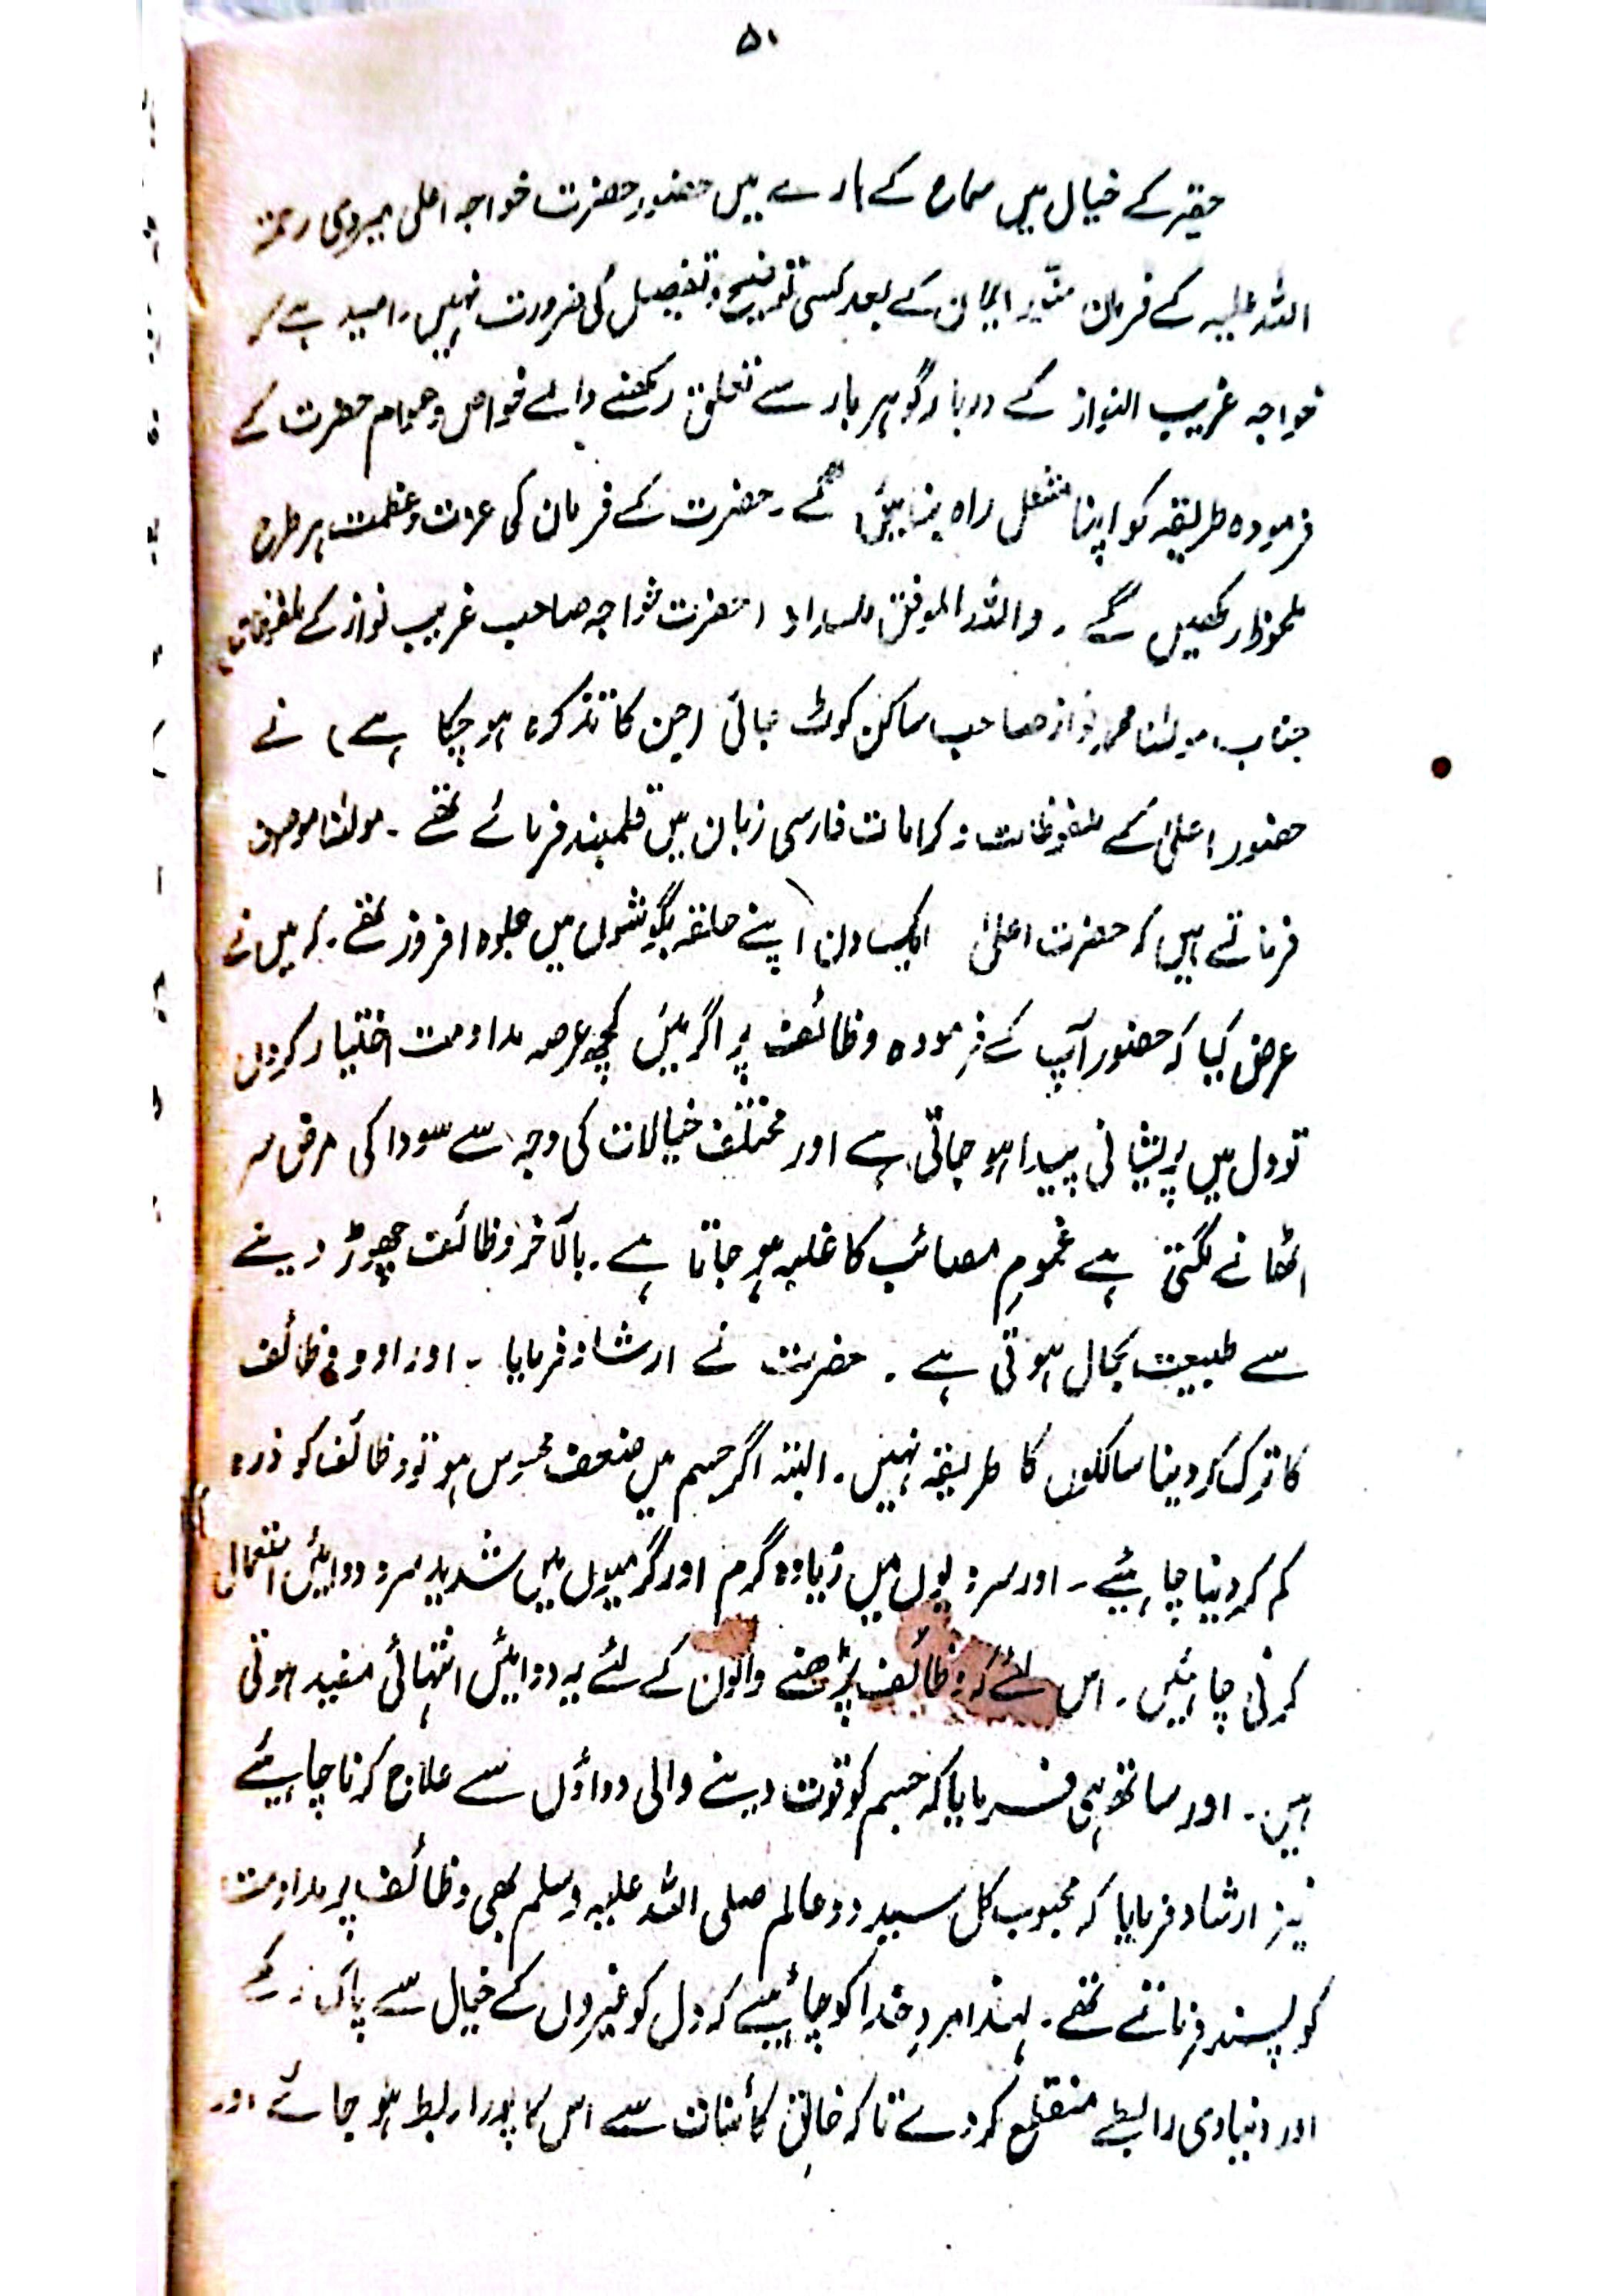 ۵۱
حقیر کے خیال میں سماع کے بارے میں حضور حضرت خواجہ اعلیٰ میروی رحمۃ
اللہ علیہ کے فرمان منیر ایمان کے بعد کسی توضیح و تفصیل کی ضرورت نہیں۔ امید ہے کہ
خواجہ غریب النواز کے دربار گوہر بار سے تعلق رکھنے والے خواص و عوام حضرت کے
فرمودہ طریقہ کو اپنا مشعل راہ بنائیں گے۔ حضرت کے فرمان کی عزت و عظمت ہر طرح
ملحوظ رکھیں گے۔ واللہ الموفق للسداد (حضرت خواجہ صاحب غریب نواز کے ملفوظات)
جناب مولٰنا محمد نواز صاحب ساکن کوٹ بھائی (جن کا تذکرہ ہو چکا ہے) نے
حضور اعلیٰ کے ملفوظات و کرامات فارسی زبان میں قلمبند فرمائے تھے۔ مولٰنا موصوف
فرماتے ہیں کہ حضرت اعلیٰ ایک دن اپنے حلقہ بگوشوں میں جلوہ افروز تھے۔ کہ میں نے
عرض کیا کہ حضور آپ کے فرمودہ وظائف پر اگر میں کچھ عرصہ مداومت اختیار کروں
تو دل میں پریشانی پیدا ہو جاتی ہے اور مختلف خیالات کی وجہ سے سودا کی مرض سر
اٹھانے لگتی ہے غمومِ مصائب کا غلبہ ہو جاتا ہے۔ بالآخر وظائف چھوڑ دینے
سے طبیعت بحال ہوتی ہے۔ حضرت نے ارشاد فرمایا۔ اوراد و وظائف
کا ترک کر دینا سالکوں کا طریقہ نہیں۔ البتہ اگر جسم میں ضعف محسوس ہو تو وظائف کو ذرہ
کم کر دینا چاہیئے۔ اور سردیوں میں زیادہ گرم اور گرمیوں میں شدید سرد دوائیں استعمال
کرنی چاہئیں۔ اس لئے کہ وظائف پڑھنے والوں کے لئے یہ دوائیں انتہائی مفید ہوتی
ہیں۔ اور ساتھ ہی فرمایا کہ جسم کو قوت دینے والی دواؤں سے علاج کرنا چاہیئے
نیز ارشاد فرمایا کہ محبوب کل سید دو عالم صلی اللہ علیہ وسلم بھی وظائف پر مداومت
کو پسند فرماتے تھے۔ لہٰذا مردِ خدا کو چاہیئے کہ دل کو غیروں کے خیال سے پاک رکھے
اور دنیاوی رابطے منقطع کر دے تاکہ خالقِ کائنات سے اس کا پورا ربط ہو جائے اور